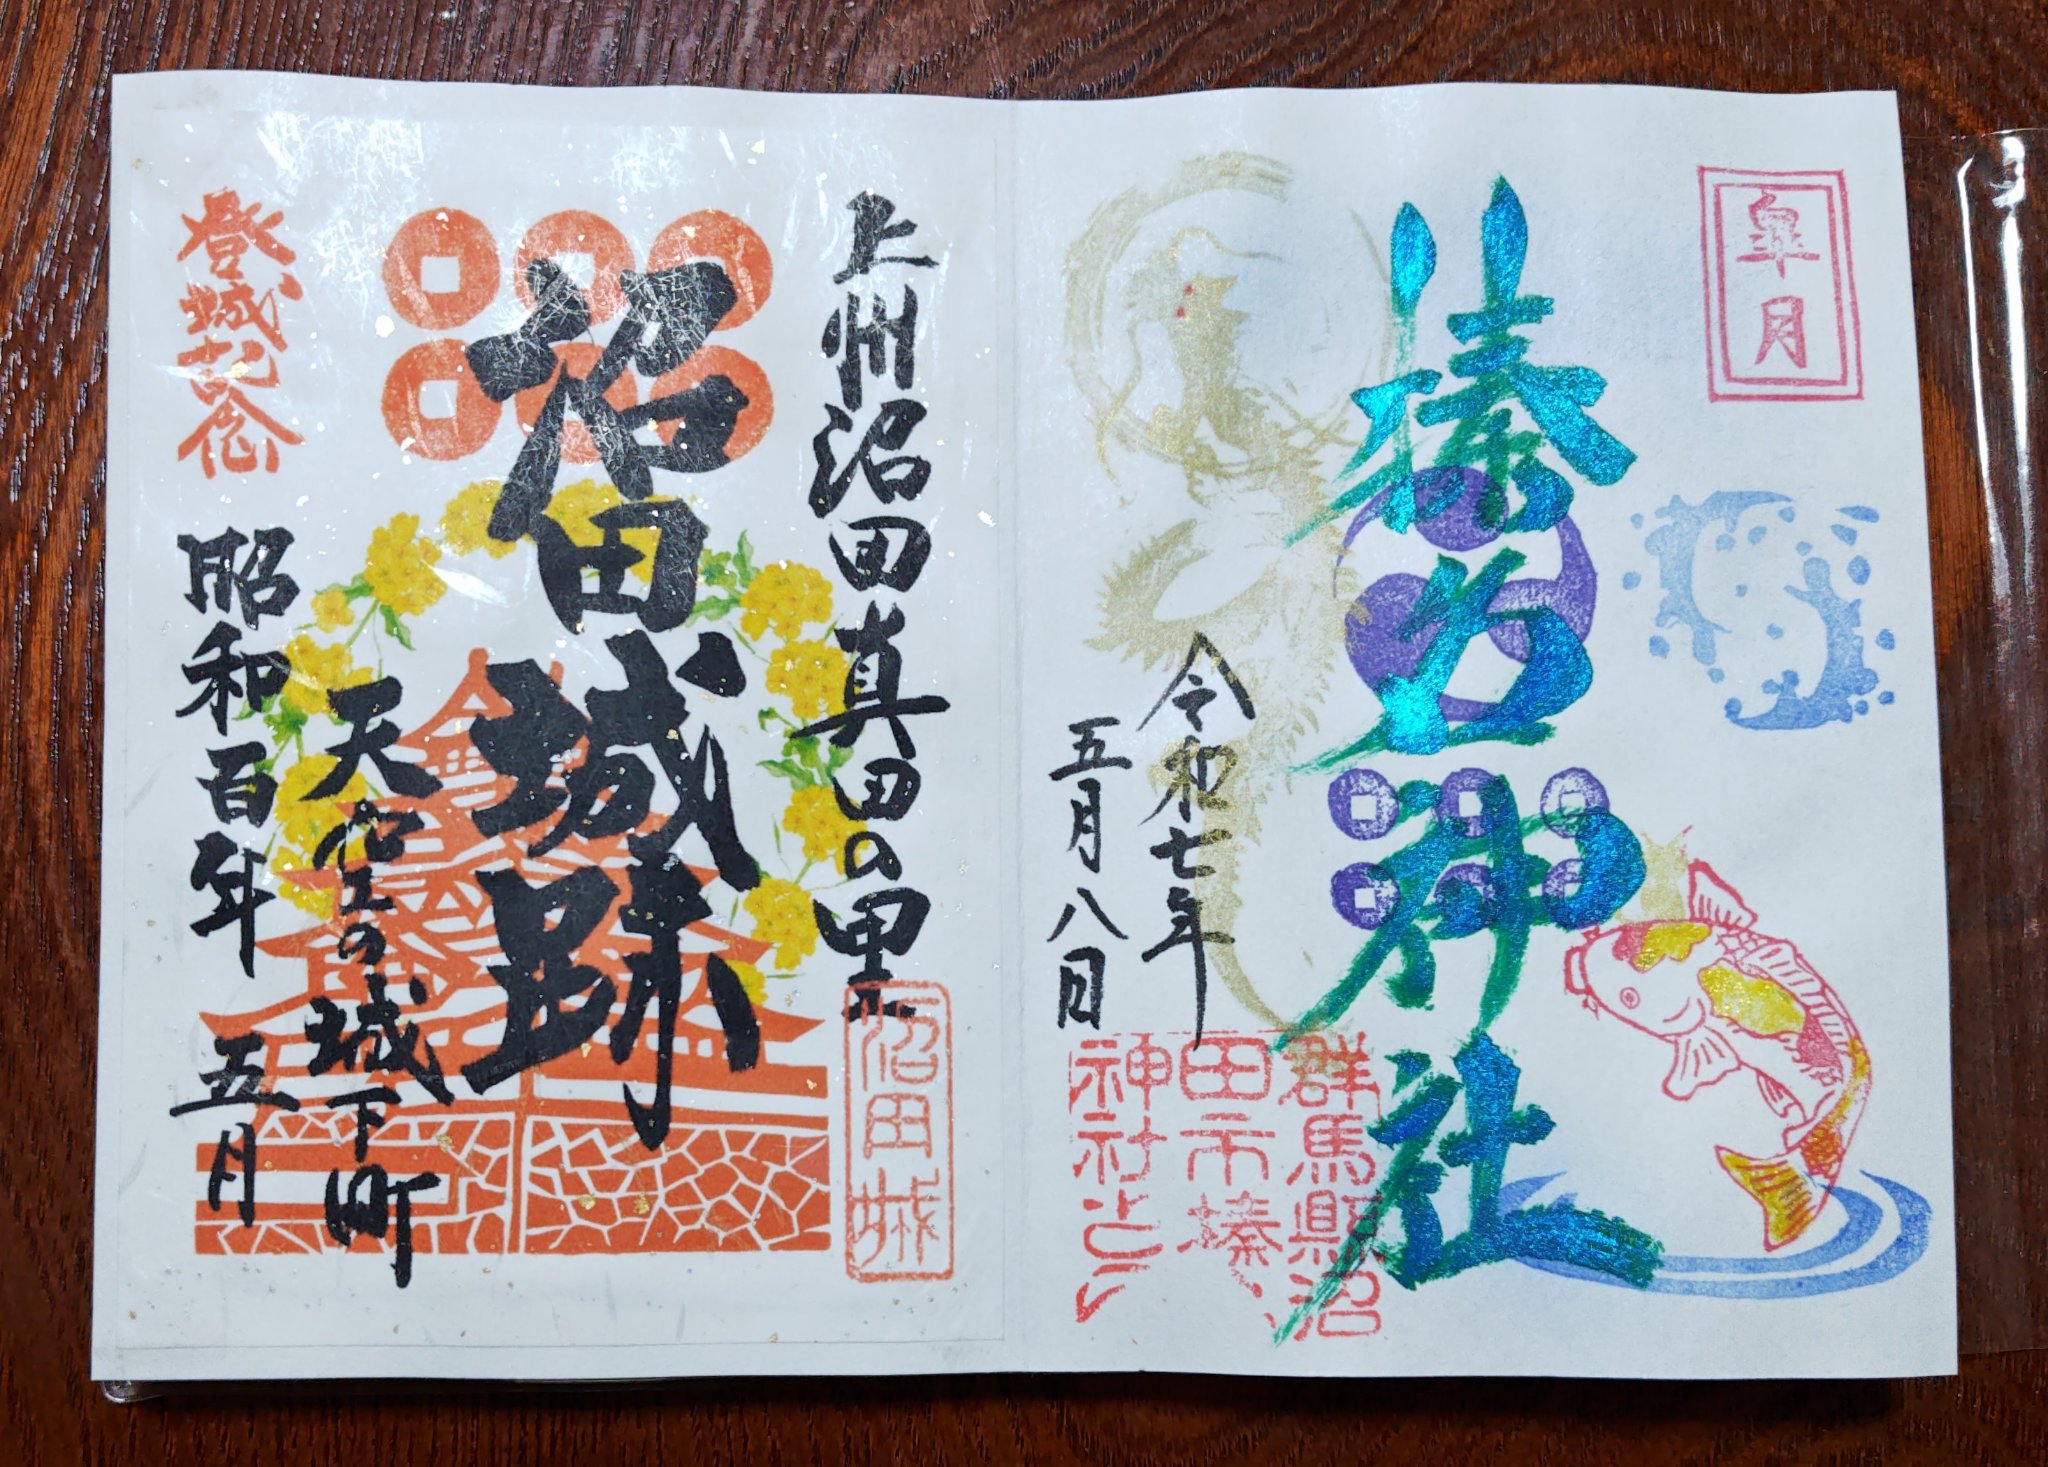 皐月
榛名神社
令和七年
五月八日
群馬縣沼
田市榛
神社
上州沼田真田の里
沼田城
沼田城跡
天空の城下町
登城記念
昭和百年 五月